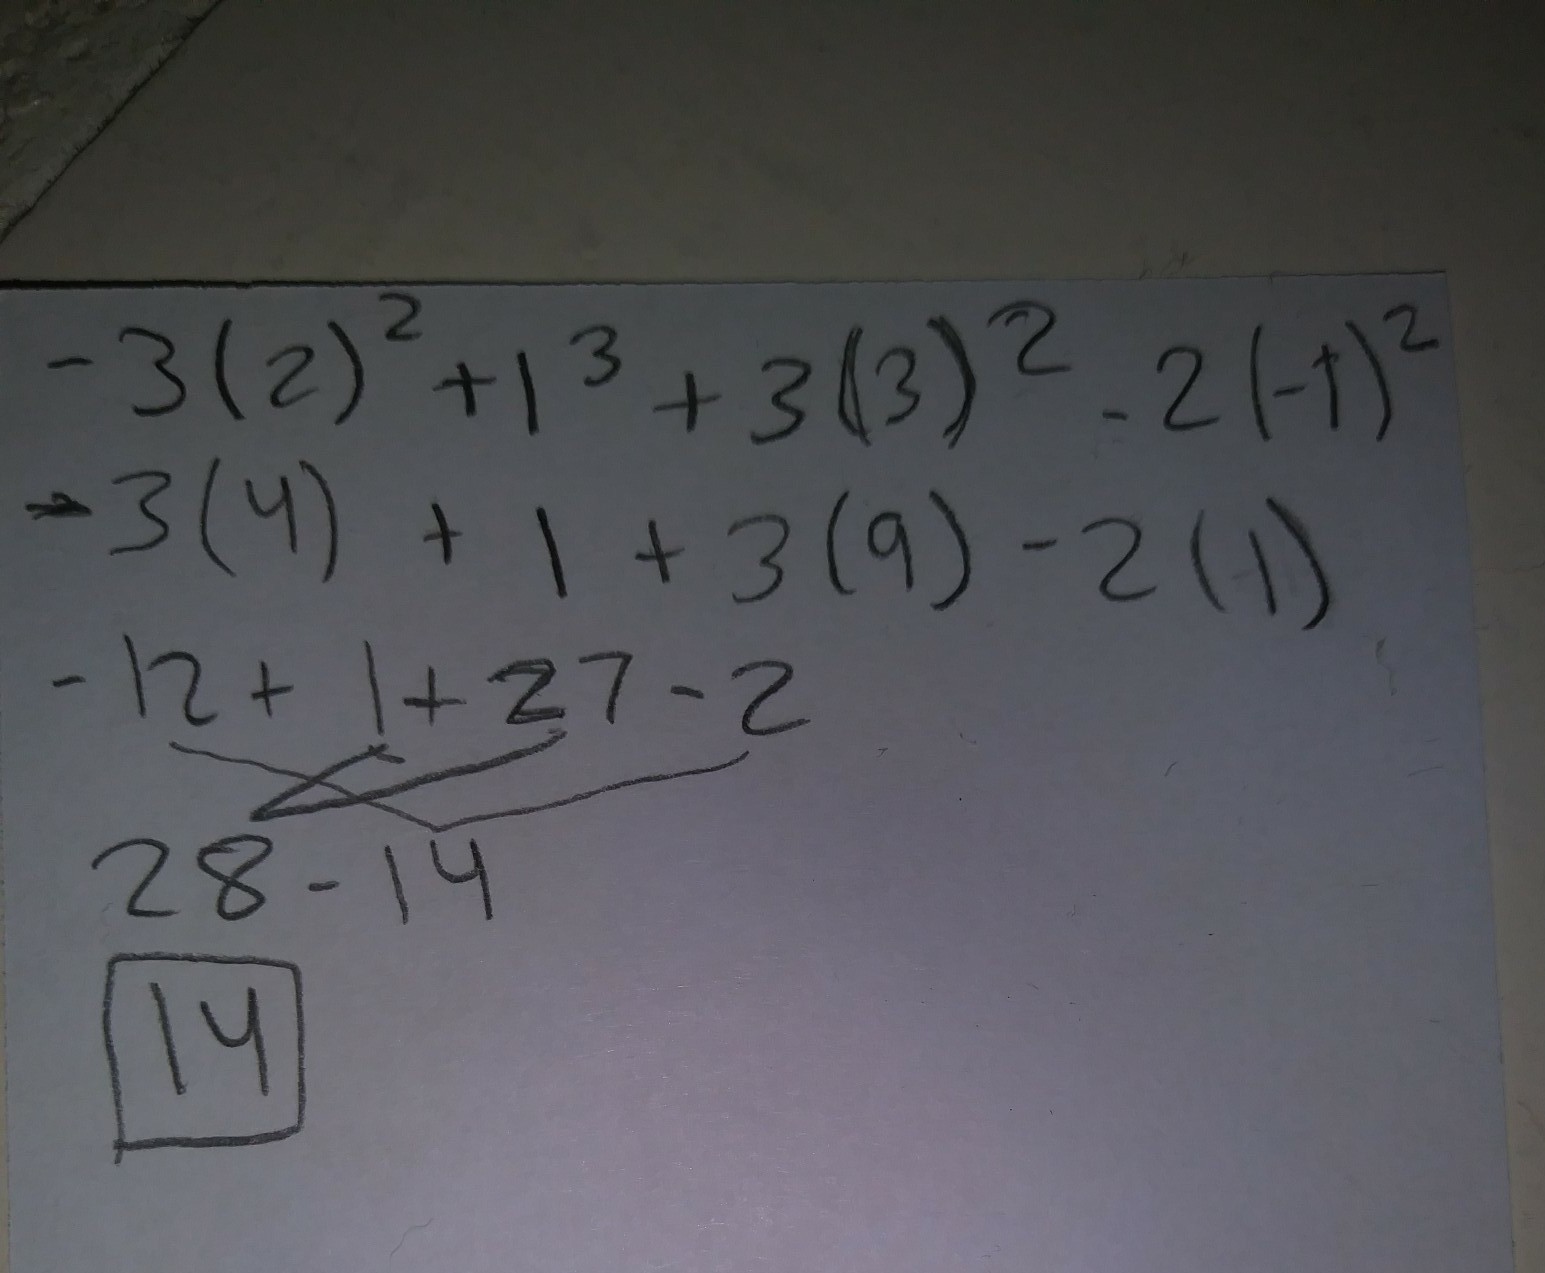 -3(2)² + 1³ + 3(3)² - 2(-1)²
-3(4) + 1 + 3(9) - 2(1)
-12 + 1 + 27 - 2
28 - 14
14